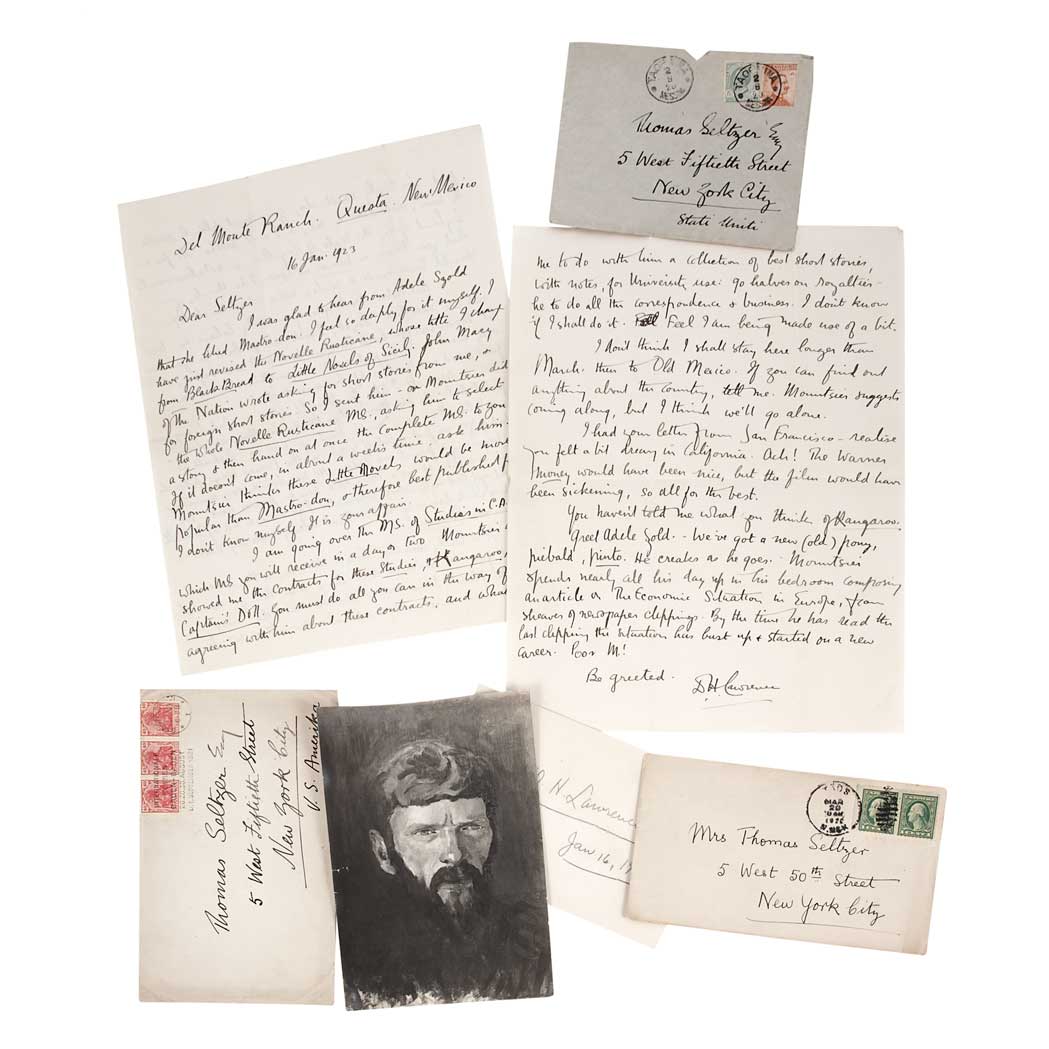 TAORMINA
MESSINA
Thomas Seltzer Esq
5 West Fiftieth Street
New York City
Stati Uniti
Del Monte Ranch. Questa. New Mexico
16 Jan. 1923
Dear Seltzer
I was glad to hear from Adele Szold
that she liked Mastro-don. I feel so deeply for it myself. I
have just revised the Novelle Rusticane, whose title I change
from Black Bread to Little Novels of Sicily. John Macy
of the Nation wrote asking for short stories from me, &
for foreign short stories. So I sent him - or Mountsier did
the whole Novelle Rusticane MS., asking him to select
a story & then hand on at once the complete MS. to you
If it doesn't come, in about a week's time, ask him.
Mountsier thinks these Little Novels would be more
popular than Mastro-don, & therefore best published
I don't know myself. It is your affair.
I am going over the MS. of Studies in C.A.
Which MS you will receive in a day or two. Mountsier
showed me the contracts for these Studies, & Kangaroo,
Captain's Doll. You must do all you can in the way of
agreeing with him about these contracts, and what
me to do with him a collection of best short stories,
with notes, for University use: go halves on royalties -
he to do all the correspondence & business. I don't know
if I shall do it. Feel I am being made use of a bit.
I don't think I shall stay here longer than
March. then to Old Mexico. If you can find out
anything about the country, tell me. Mountsier suggests
coming along, but I think we'll go alone.
I had your letter from San Francisco - realise
you felt a bit dreary in California. Ach! The Warner
money would have been nice, but the film would have
been sickening, so all for the best.
You haven't told me what you think of Kangaroo.
Greet Adele Szold. - We've got a new (old) pony,
piebald, pinto. He creaks as he goes. - Mountsier
spends nearly all his day up in his bedroom composing
an article on The Economic Situation in Europe, from
sheaves of newspaper clippings. By the time he has read the
last clipping the situation has bust up & started on a new
career. Poor M!
Be greeted.
D.H. Lawrence
Thomas Seltzer Esq
5 West Fiftieth Street
New York City
U.S. Amerika
H Lawrence
Jan 16, 19
TAOS
MAR
20
N.MEX
Mrs Thomas Seltzer
5 West 50th Street
New York City